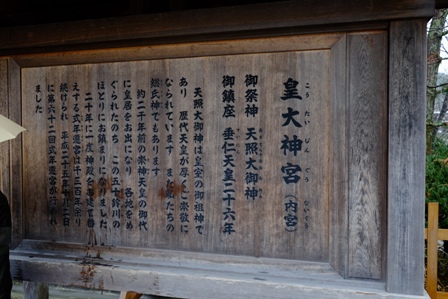 皇大神宮（内宮）
こうたいじんぐう ないくう
御祭神 天照大御神
御鎮座 垂仁天皇二十六年
天照大御神は皇室の御祖神で
あり 歴代天皇が厚くご崇敬に
なられています また私たちの
総氏神でもあります
約二千年前の崇神天皇の御代
に皇居をお出になり 各地をめ
ぐられたのち この五十鈴川の
ほとりにお鎮まりになりました
二十年に一度神殿をお建て替
えする式年遷宮は千三百年余り
続けられ 平成二十五年十月二日
に第六十二回式年遷宮が行われ
ました